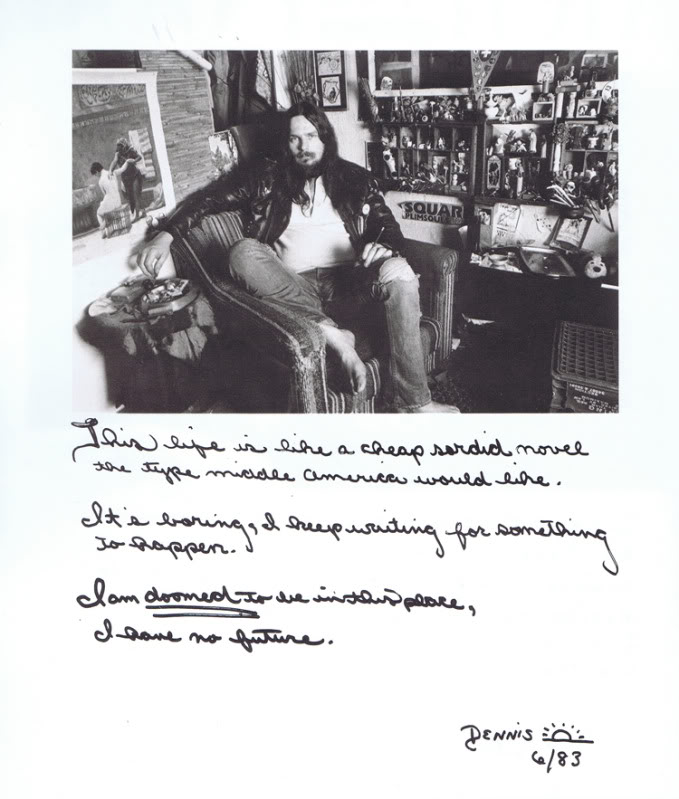 SQUAR
PLIMSOUL
This life is like a cheap sordid novel
the type middle America would like.
It's boring, I keep writing for something
to happen.
I am doomed to be in this place,
I have no future.
DENNIS
6/83